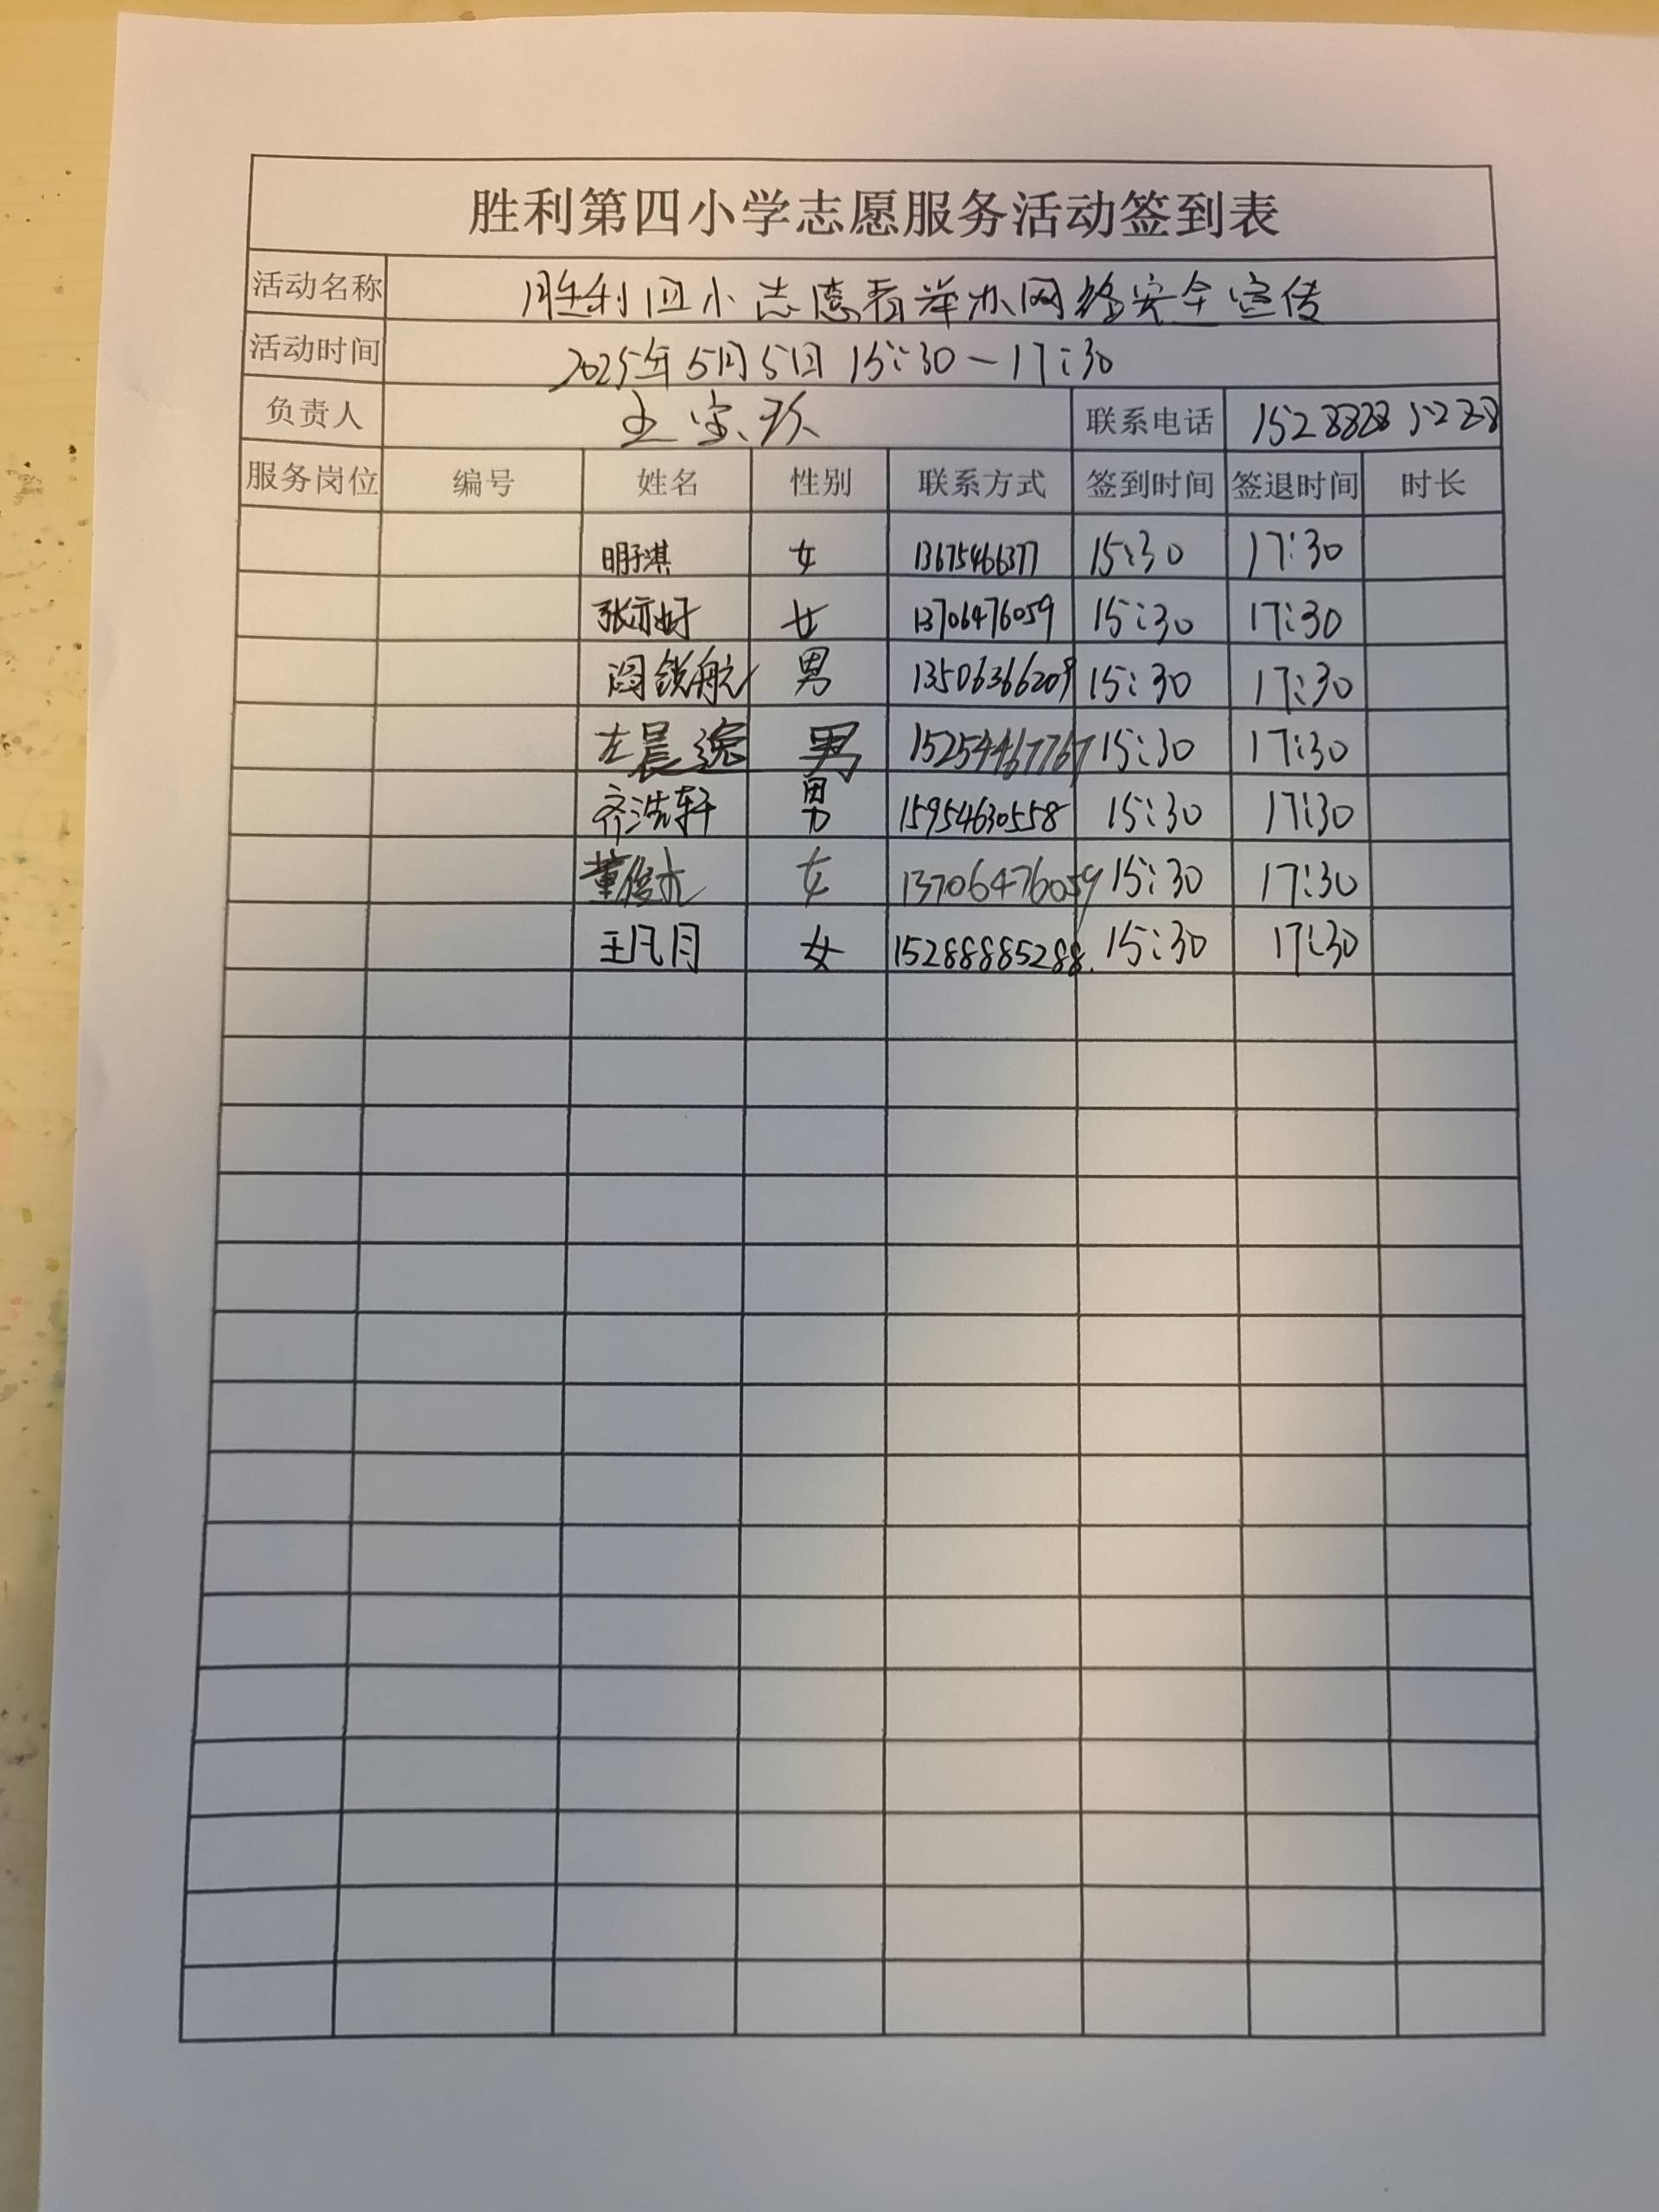 胜利第四小学志愿服务活动签到表
活动名称 胜利四小志愿者举办网络安全宣传
活动时间 2025年5月5日 15:30—17:30
负责人 王 联系电话
服务岗位 编号 姓名 性别 联系方式 签到时间 签退时间 时长
明子淇 女 13675466377 15:30 17:30
张亦好 女 13706476059 15:30 17:30
阎锐航 男 13506366209 15:30 17:30
左晨逸 男 15254467767 15:30 17:30
齐浩轩 男 15954630558 15:30 17:30
董俊 女 13706476059 15:30 17:30
王凡月 女 15288885288 15:30 17:30